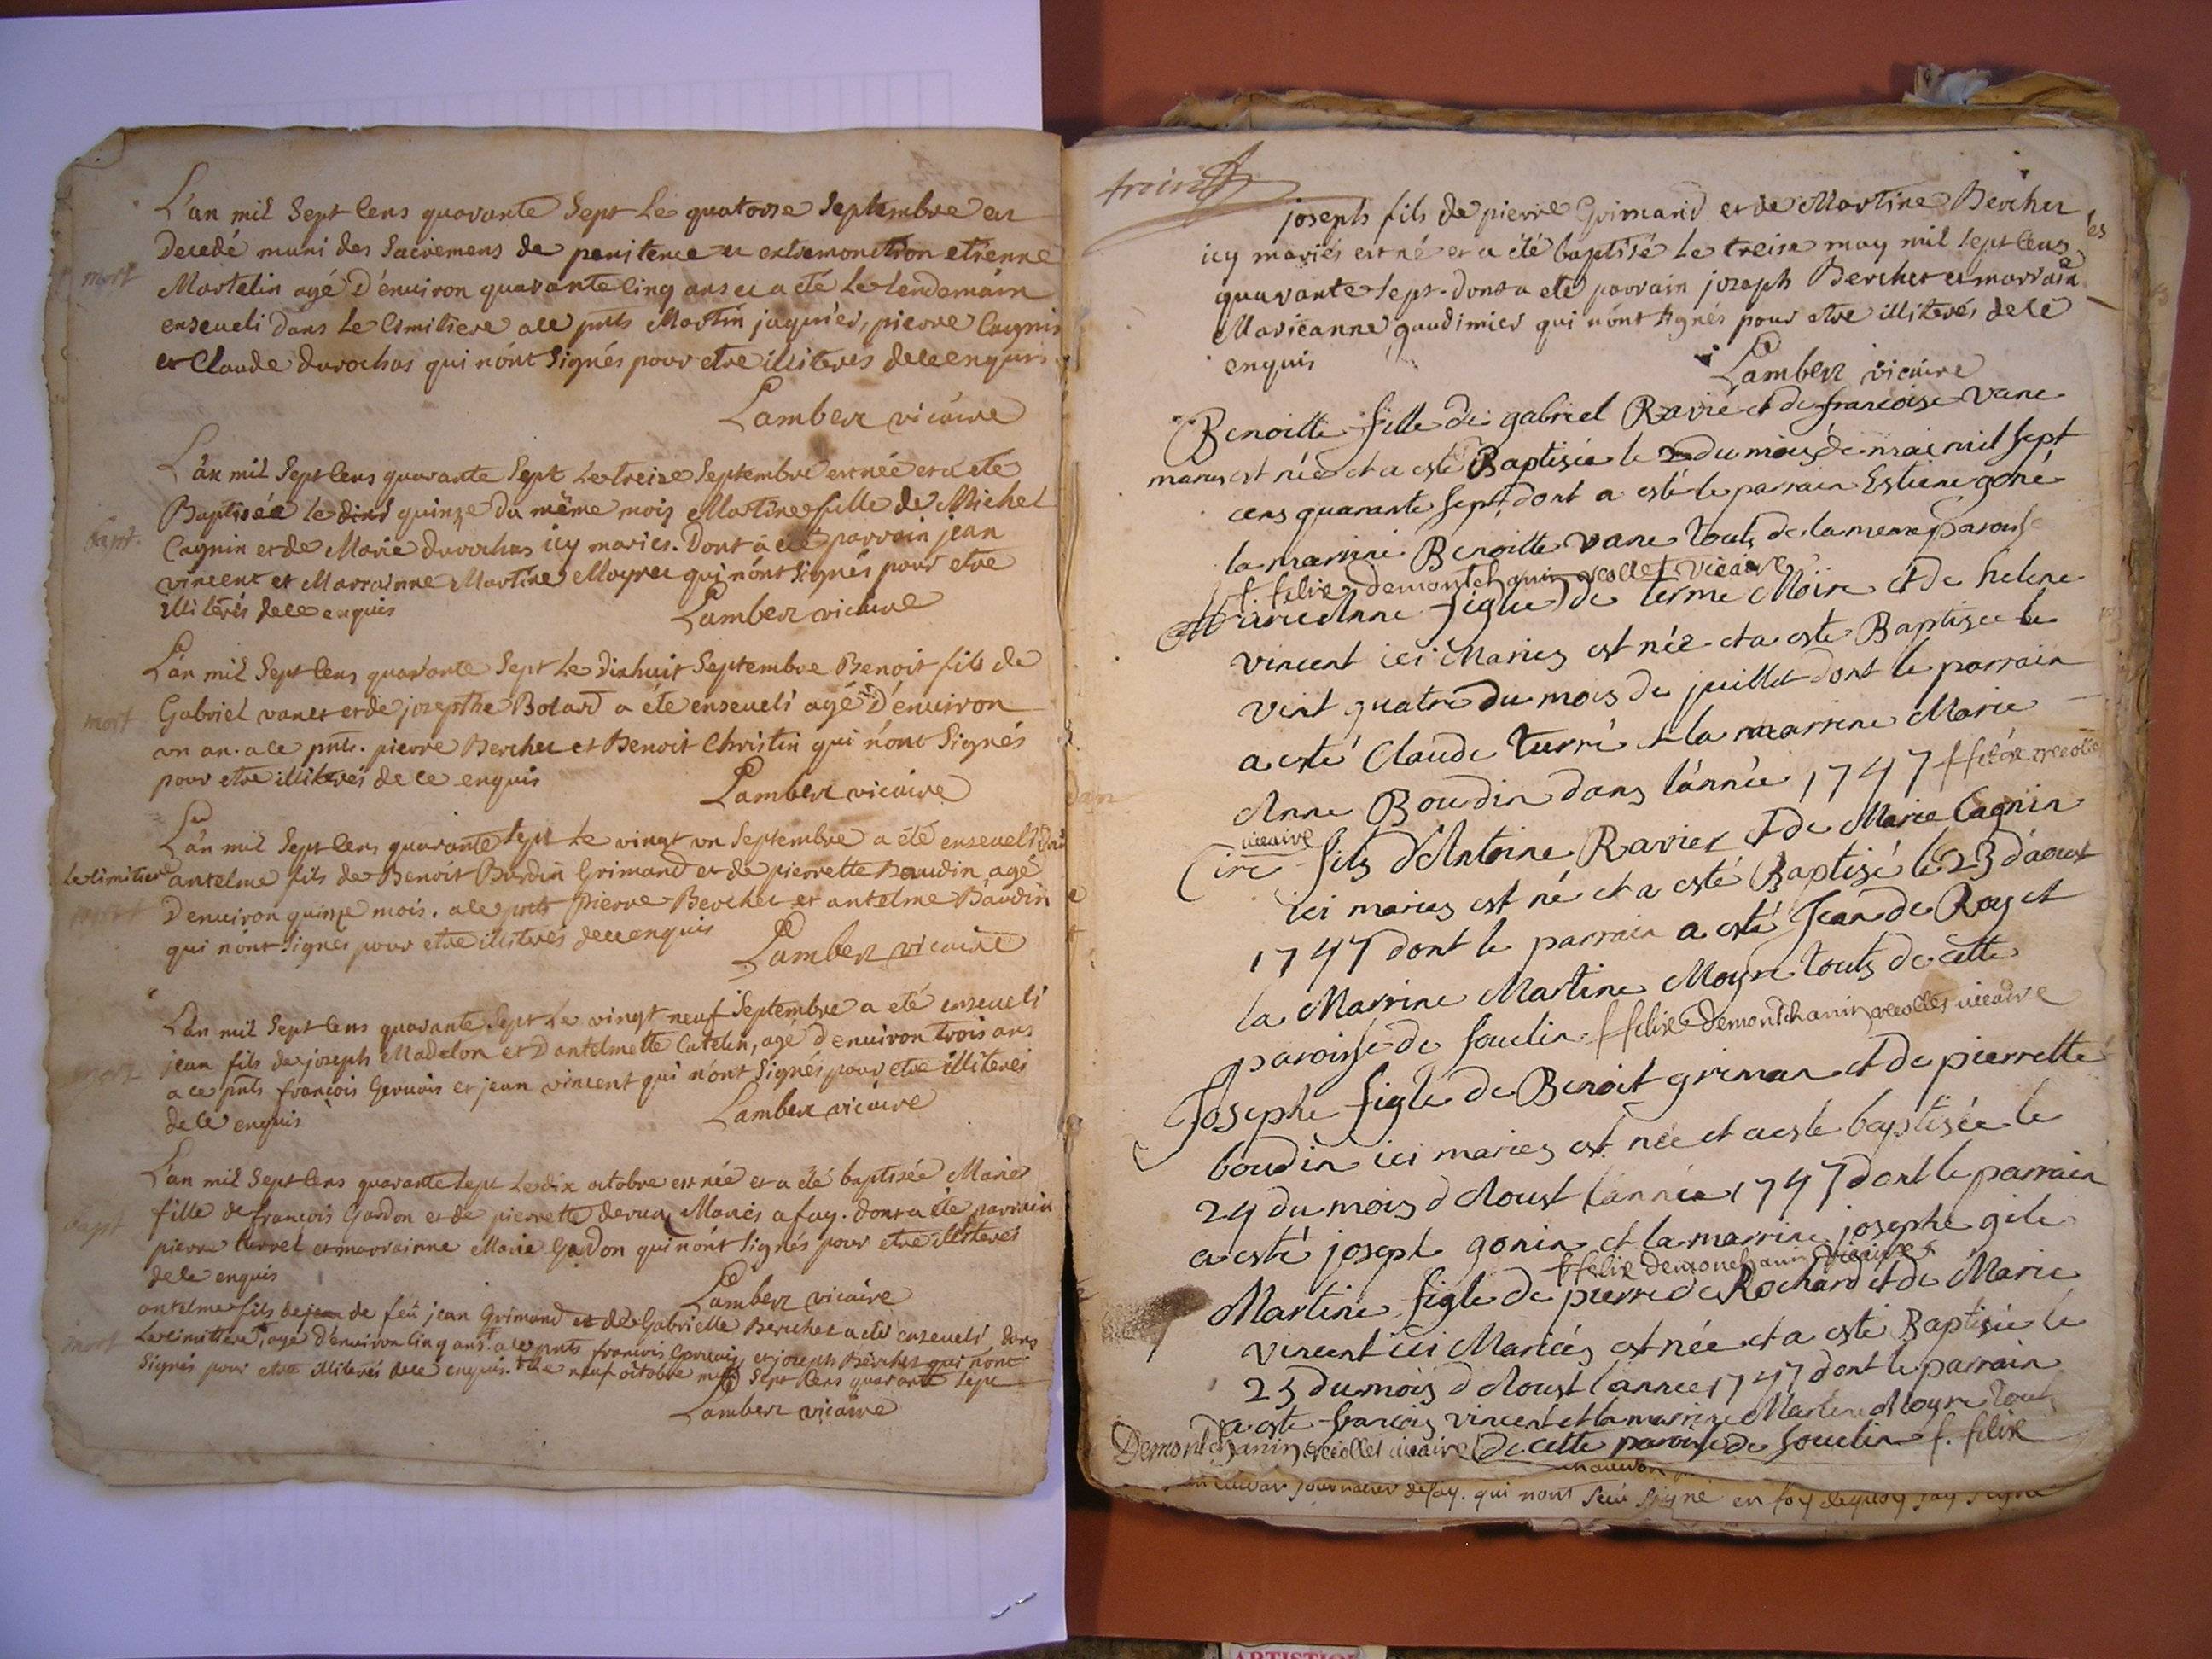 L'an mil Sept Cens quarante Sept Le quatorse Septembre est
Decedé muni des Sacremens de penitence et extremonition etienne
mort
Martelin agé D'enuiron quarante Cinq ans et a eté Le Lendemain
enseueli dans Le Cimitiere a ce pnts Martin jaquier, pierre Cagnin
et Claude durochas qui nónt Signés pour etre illiteres de ce enquis
Lamber vicaire
L'an mil Sept Cens quarante Sept Le treise Septembre est née et a eté
Baptisée Le dixs quinze du même mois Martine fille de Michel
bapt.
Cagnin et de Marie durochas icy mariés. Dont a eté parrain jean
vincent et Marrainne Martine Moyret qui nónt Signés pour etre
illiterés de ce enquis
Lamber vicaire
L'an mil Sept Cens quarante Sept Le Dixhuit Septembre Benoit fils de
mort
Gabriel vanet et de josepthe Bolard a été enseueli agé D'enuiron
un an. a ce pnts. pierre Bercher et Benoit Christin qui nónt Signés
pour etre illiterés de ce enquis
Lamber vicaire
L'an mil Sept Cens quarante Sept Le vingt un Septembre a été enseueli dns
Le Cimitiere antelme fils de Benoit Burdin Grimand et de pierrette Baudin agé
mort
D'enuiron quinze mois. a ce pnts pierre Bercher et antelme Baudin
qui nónt Signés pour etre illiterés de ce enquis
Lamber vicaire
L'an mil Sept Cens quarante Sept Le vingt neuf Septembre a eté enseueli
jean fils de joseph Madelon et D'antelmette Catelin, agé d'enuiron trois ans
mort
a ce pnts françois Geruais et jean vincent qui n'ont Signés pour etre illiterés
de ce enquis
Lamber vicaire
L'an mil Sept Cens quarante Sept Le dix octobre est née et a été baptisée Marie
bapt
fille de françois Gardon et de pierrette Mariés a fay. dont a été parrain
pierre turrel et marrainne Marie Gardon qui nónt Signés pour etre illiterés
de ce enquis
Lamber vicaire
antelme fils de jean de feu jean Grimand et de Gabrielle Bercher a eté enseueli dans
mort
Le Cimitiere, agé d'enuiron Cinq ans. a ce pnts françois Geruais et joseph Bercher qui nónt
Signés pour etre illiterés de ce enquis. Le neuf octobre mil Sept Cens quarante Sept
Lamber vicaire
joseph fils de pierre Grimand et de Martine Bercher
icy mariés est né et a été baptisé Le treise may mil Sept Cens
quarante Sept. dont a eté parrain joseph Bercher et marraine
Marieanne gaudimier qui nónt Signés pour etre illiterés de ce
enquis
Lamber vicaire
Benoitte fille de gabriel Ravié et de françoise vane
maries est née et a esté Baptisée le 2 du mois de mai mil sept
cens quarante sept dont a esté le parrain Estiene goné
la marrine Benoitte vane touts de la meme paroisse
f. felix demontchanin recollet vicaire
Marie Anne figlie de terme Moire et de helene
vincent ici Maries est née et a este Baptisée le
vint quatre du mois de juillet dont le parrain
a esté Claude turré et la marrine Marie
Anne Boudin dans lánnée 1747 f felix recollet
vicaire
Cire fils d'Antoine Ravier et de Marie Cagnin
ici maries est né et a esté Baptisé le 23 d'aoust
1747 dont le parrain a esté Jean de Roy et
la Marrine Martine Moyre touts de cette
paroisse de souclin f felix demontchanin recollet vicaire
Josephe figle de Benoit griman et de pierrette
boudin ici maries est née et a este baptisée le
24 du mois d'Aoust lannée 1747 dont le parrain
a esté joseph gonin et la marrine josephe gile
f felix demonchanin vicaire
Martine figle de pierre de Rochard et de Marie
vincent ici Mariés est née et a este Baptisée le
25 du mois d'Aoust lannee 1747 dont le parrain
a este françois vincent et la marrine Martine Moyre touts
de cette paroisse de souclin f. felix
Demontchanin recollet vicaire
journalier de fay. qui nont Sceu Signé en foy dequoy jay Signé